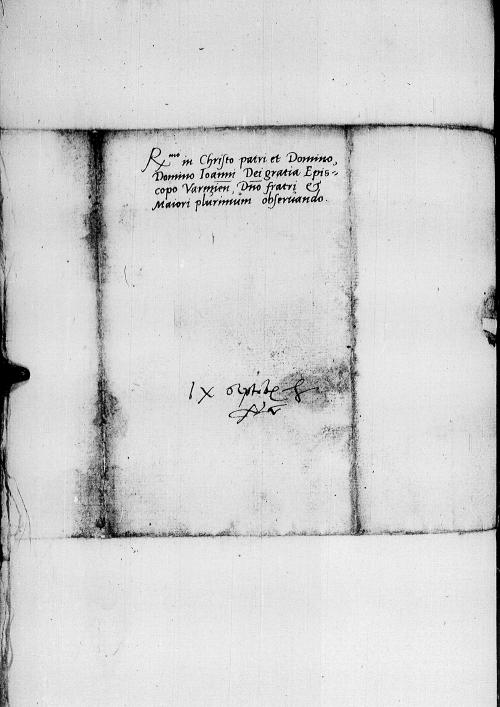 Rx.mo in Christo patri et Domino,
Domino Ioanni Dei gratia Epis-
copo Varmien, Dno fratri &
Maiori plurimum observando.
IX